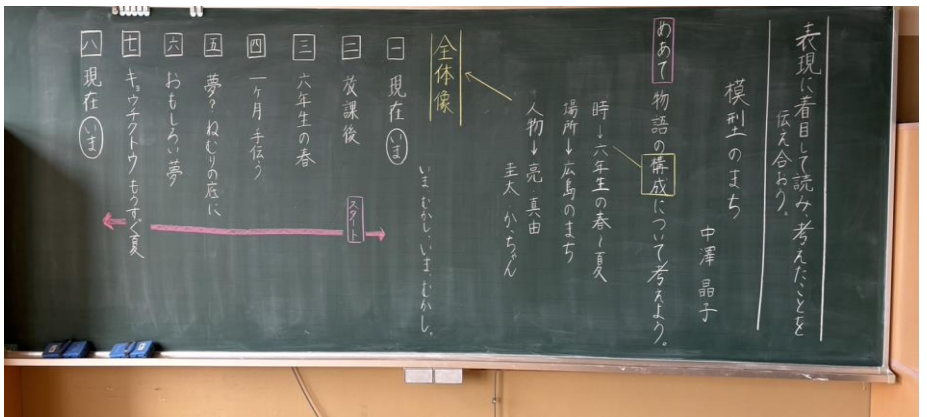 表現に着目して読み、考えたことを
伝え合おう。
模型のまち
中澤晶子
めあて 物語の構成について考えよう。
時→六年生の春〜夏
場所→広島のまち
人物→亮・真由
圭太・かっちゃん
全体像
いまむかし、いま、むかし。
一 現在 いま
二 放課後
スタート
三 六年生の春
四 一ヶ月 手伝う
五 夢?ねむりの底に
六 おもしろい夢
七 キョウチクトウ もうすぐ夏
八 現在 いま